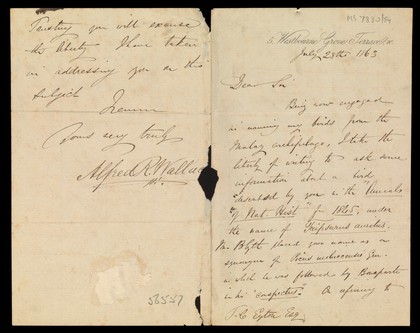 Trusting you will excuse
the liberty I have taken
in addressing you on this
subject
I remain
Yours very truly
Alfred R. Wallace
56557
MS 7830/14
5, Westbourne Grove Terrace, W.
July 28th. 1863
Dear Sir
Being now engaged
in naming my birds from the
Malay archipelago, I take the
liberty of writing to ask some
information about a bird
described by you in the "Annals
of Nat. Hist" for 1845, under
the name of
Mr. Blyth placed your name as a
synonym of Picus Em.
in which he was followed by Bonaparte
in his "Conspectus". On referring to
T. C. Eyton Esq.